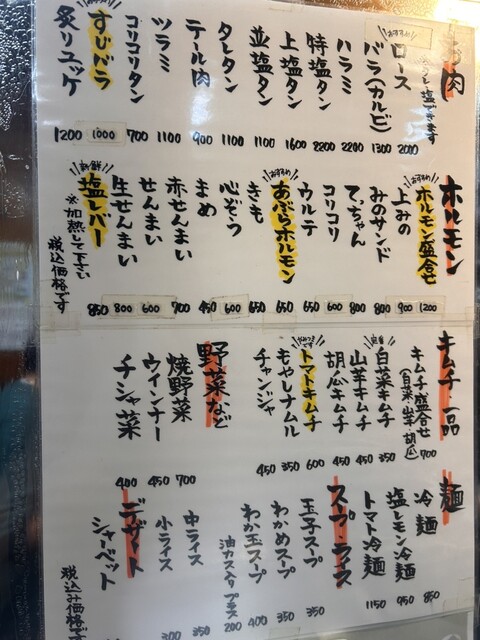 お肉
※タレ塩できます
おすすめ
ロース 2000
バラ(カルビ) 1300
ハラミ 2200
特塩タン 2200
上塩タン 1600
並塩タン 1100
タレタン 1100
テール肉 900
ツラミ 1100
コリコリタン 700
おすすめ
すじバラ 1000
炙りユッケ 1200
ホルモン
おすすめ
ホルモン盛合せ 1200
上みの 900
みのサンド 800
てっちゃん 800
コリコリ 600
ウルテ 650
おすすめ
あぶらホルモン 650
きも 650
心ぞう 600
まめ 450
赤せんまい 700
せんまい 600
生せんまい 800
新鮮
塩レバー 850
※加熱して下さい
税込価格です
キムチ・一品
キムチ盛合せ
(白菜・山芋・胡瓜) 700
定番
白菜キムチ 350
山芋キムチ 450
胡瓜キムチ 450
トマトキムチ 600
もやしナムル 350
チャンジャ 450
野菜など
焼野菜 700
ウインナー 450
チシャ菜 400
麺
冷麺 850
塩レモン冷麺 950
トマト冷麺 1150
スープ・ライス
玉子スープ 350
わかめスープ 350
わか玉スープ 400
油カス入りプラス 200
中ライス 300
小ライス
デザート
シャーベット
税込み価格です